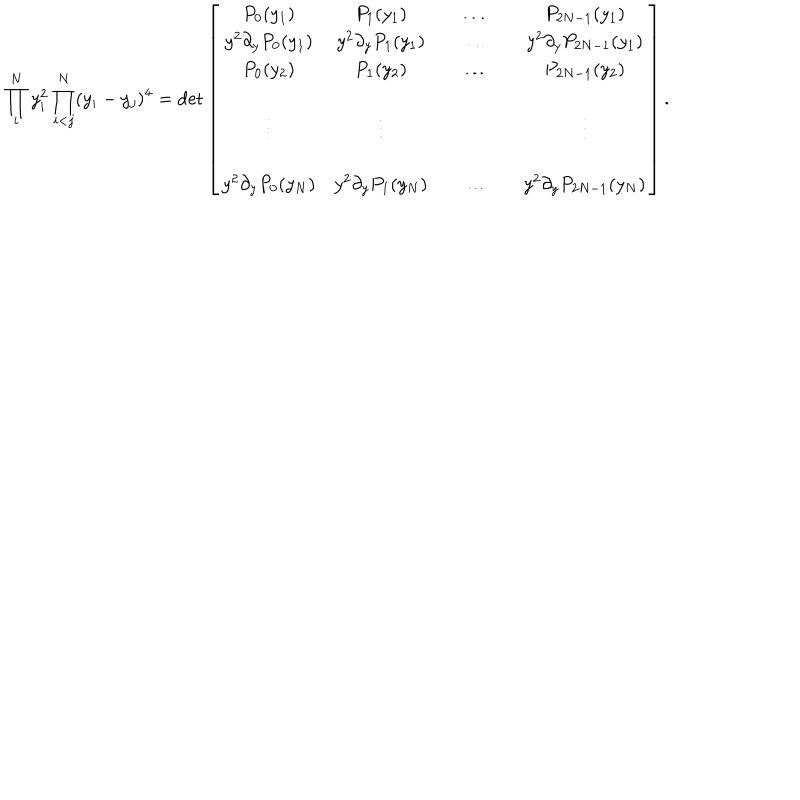 \prod_{i}^{N} y_i^2 \prod_{i<j}^{N} (y_i - y_j)^4 = \det \begin{bmatrix} P_0(y_1) & P_1(y_1) & \dots & P_{2N-1}(y_1) \\ y^2 \partial_y P_0(y_1) & y^2 \partial_y P_1(y_1) & \dots & y^2 \partial_y P_{2N-1}(y_1) \\ P_0(y_2) & P_1(y_2) & \dots & P_{2N-1}(y_2) \\ \vdots & \vdots & & \vdots \\ y^2 \partial_y P_0(y_N) & y^2 \partial_y P_1(y_N) & \dots & y^2 \partial_y P_{2N-1}(y_N) \end{bmatrix} .